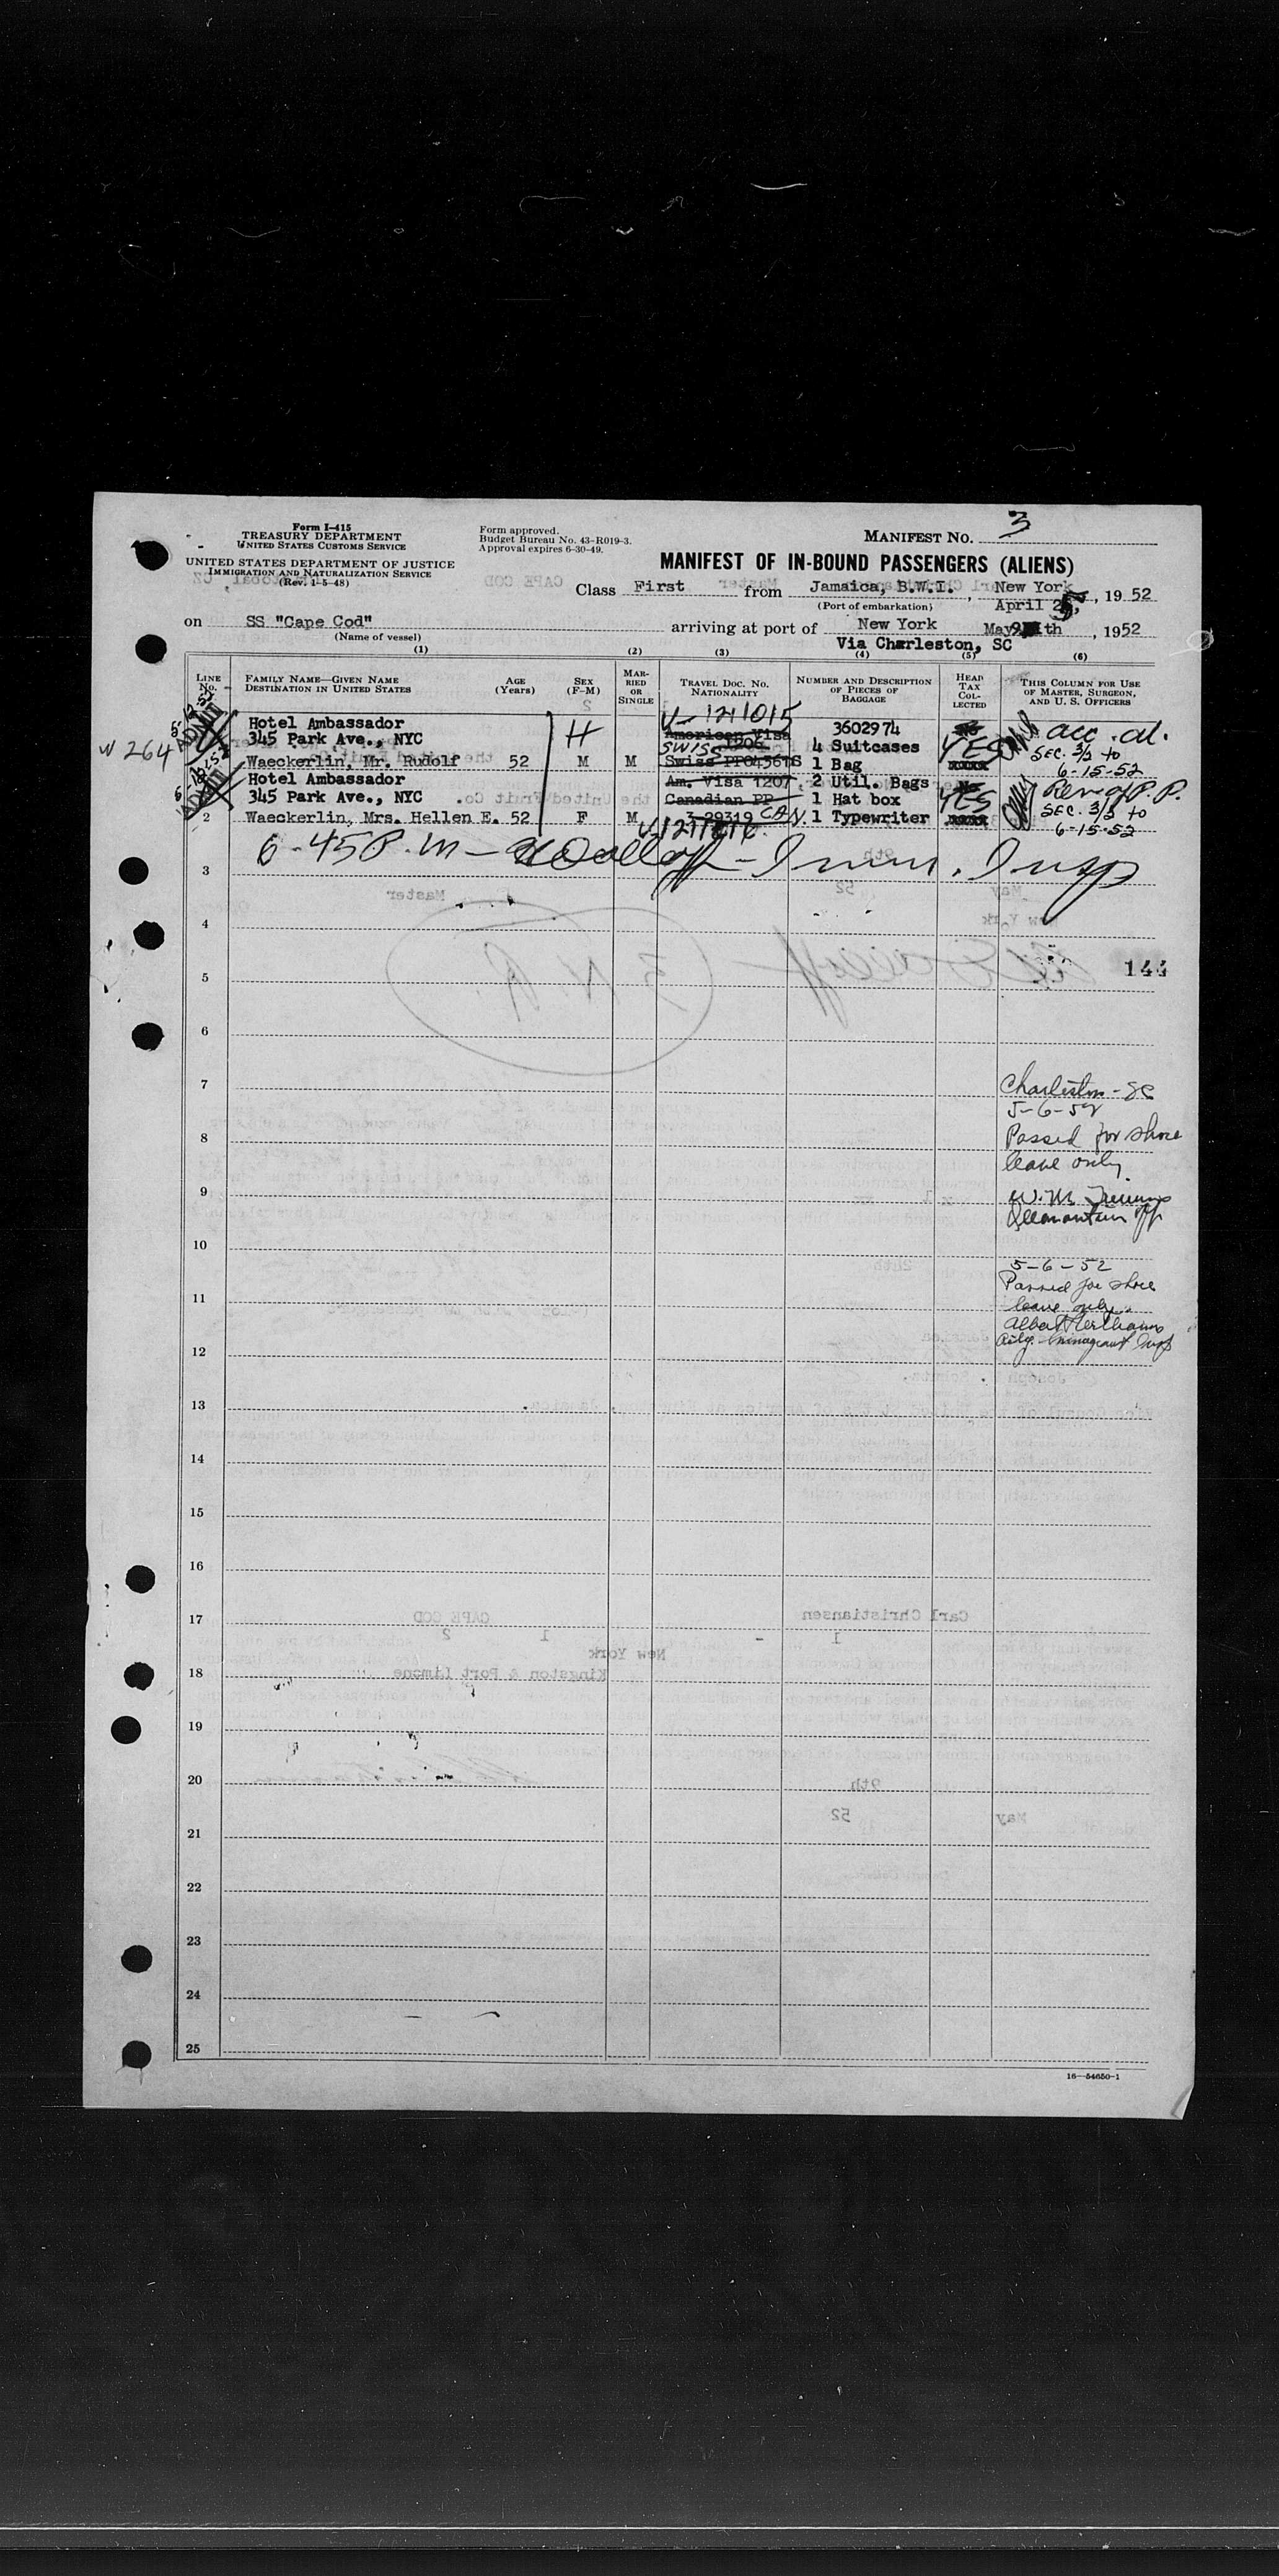 Form I-415
TREASURY DEPARTMENT
UNITED STATES CUSTOMS SERVICE
UNITED STATES DEPARTMENT OF JUSTICE
IMMIGRATION AND NATURALIZATION SERVICE
(Rev. 1-5-48)
Form approved.
Budget Bureau No. 43-R019-3.
Approval expires 6-30-49.
MANIFEST NO. 3
MANIFEST OF IN-BOUND PASSENGERS (ALIENS)
Class First from Jamaica, B.W.I. , New York
(Port of embarkation) April 25, 1952
on SS "Cape Cod" arriving at port of New York May 9th , 1952
(Name of vessel) Via Charleston, SC
(1) (2) (3) (4) (5) (6)
LINE No. FAMILY NAME—GIVEN NAME DESTINATION IN UNITED STATES AGE (Years) SEX (F-M) MARRIED OR SINGLE TRAVEL DOC. NO. NATIONALITY NUMBER AND DESCRIPTION OF PIECES OF BAGGAGE HEAD TAX COLLECTED THIS COLUMN FOR USE OF MASTER, SURGEON, AND U. S. OFFICERS
V-1211015
Hotel Ambassador H American Visa 3602974 acc. al.
345 Park Ave., NYC SWISS 1206 4 Suitcases YES SEC. 3/2 to
W 264 ADMIT Waeckerlin, Mr. Rudolf 52 M M 1 Bag 6-15-52
Hotel Ambassador Am. Visa 1207 2 Util. Bags P.P.
345 Park Ave., NYC Canadian PP 1 Hat box YES SEC. 3/2 to
ADMIT 2 Waeckerlin, Mrs. Hellen E. 52 F M 3-29319 CAN. 1 Typewriter 6-15-52
6-45 P.M — Imm. Insp
3
4
144
5
6
7
Charleston - SC
5-6-52
8
Passed for shore
leave only
9
W. M.
10
5-6-52
Passed for shore
11
leave only
Albert
12
13
14
15
16
17
18
19
20
21
22
23
24
25
16—54650-1